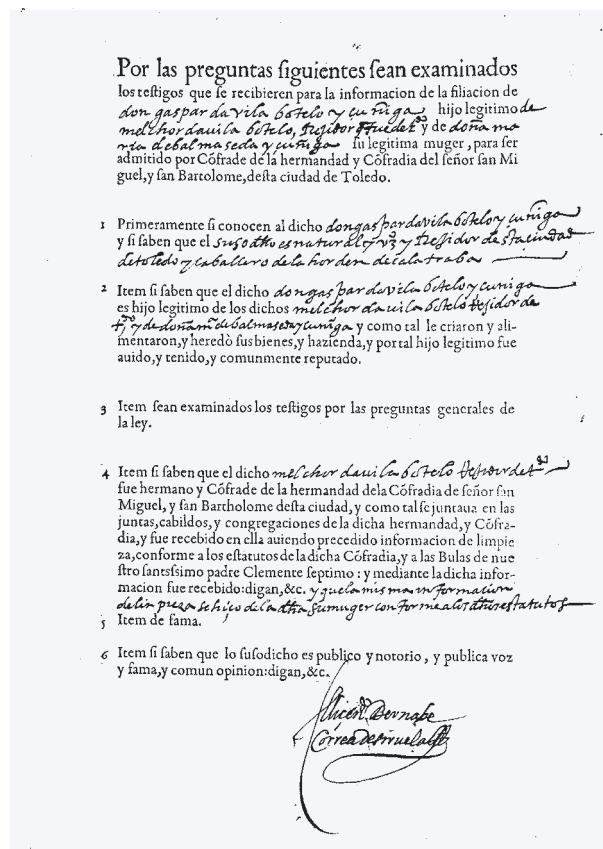 Por las preguntas siguientes sean examinados
los testigos que se recibieren para la informacion de la filiacion de
don gaspar davila botelo y cuñiga hijo legitimo de
melchor davila botelo, Rejidor que fue de tº y de doña ma
ria de balmaseda y cuñiga su legitima muger, para ser
admitido por Cõfrade de la hermandad y Cõfradia del señor san Mi
guel, y san Bartolome, desta ciudad de Toledo.
1 Primeramente si conocen al dicho don gaspar davila botelo y cuñiga
y si saben que el susodho es natural y vº y Rejidor de sta ciudad
de toledo y caballero de la horden de calatraba
2 Item si saben que el dicho don gaspar davila botelo y cuñiga
es hijo legitimo de los dichos melchor davila botelo Rejidor de
tº y de doña mª de balmaseda y cuñiga y como tal le criaron y ali-
mentaron, y heredò sus bienes, y hazienda, y por tal hijo legitimo fue
auido, y tenido, y comunmente reputado.
3 Item sean examinados los testigos por las preguntas generales de
la ley.
4 Item si saben que el dicho melchor davila botelo Rejidor de tº
fue hermano y Cõfrade de la hermandad dela Cõfradia de señor san
Miguel, y san Bartholome desta ciudad, y como tal se juntaua en las
juntas, cabildos, y congregaciones de la dicha hermandad, y Cõfra-
dia, y fue recebido en ella auiendo precedido informacion de limpie
za, conforme a los estatutos de la dicha Cõfradia, y a las Bulas de nue
stro santissimo padre Clemente septimo: y mediante la dicha infor-
macion fue recebido: digan, &c. y que la misma informacion
de linpieza se hiço de la dha su muger conforme a los dhos estatutos
5 Item de fama.
6 Item si saben que lo susodicho es publico y notorio, y publica voz
y fama, y comun opinion: digan, &c.
Licendº Bernabe
Correa de